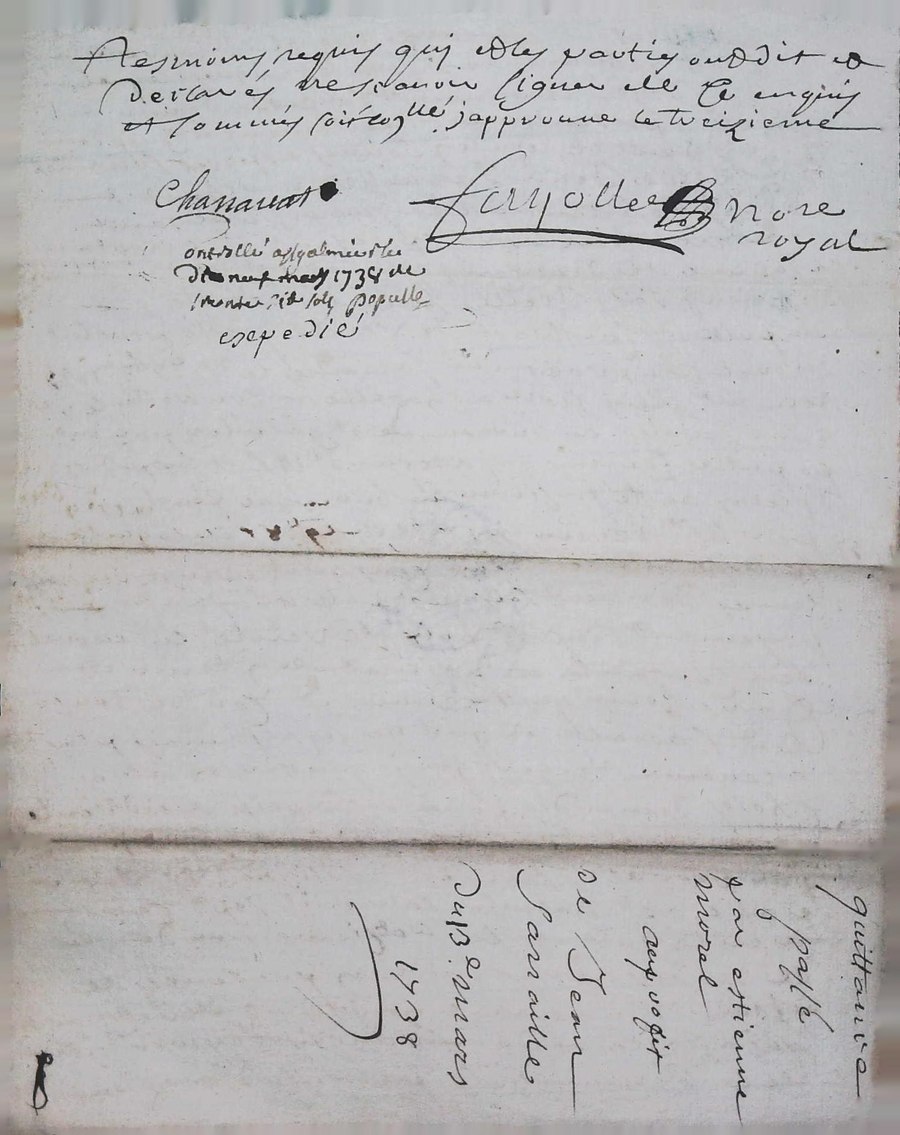 tesmoins requis qui et les parties ont dit et
declarés ne scavoir signer de ce enquis
et sommés soit coⁿˡˡᵉ j'approuue le treizieme
Chanauat
fayolle noʳᵉ
royal
ontrollé a le
dix neuf mars 1738 de
sols
expedié
quittance
passé
par estienne
morel
au profit
de Jean
Sarraille
du 13ᵉ mars
1738